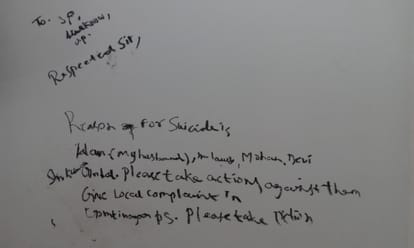 To. SP,
Lucknow,
UP.
Respected Sir,
Reason of For Suicide is
(my husband), in laws, Mohan, Devi
Please take action against them
Give Local complaint in
PS. Please take